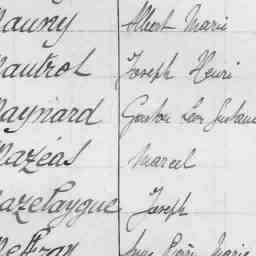 Mauny Albert Marie
Mautrot Joseph Henri
Maynard Gaston Léon Gustave
Mazéas Marcel
Mazelaygue Joseph
Pierre Marie